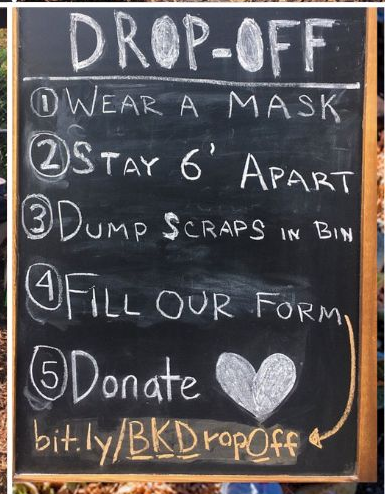 DROP-OFF
① WEAR A MASK
② STAY 6' APART
③ DUMP SCRAPS IN BIN
④ FILL OUR FORM
⑤ Donate
bit.ly/BKDropOff